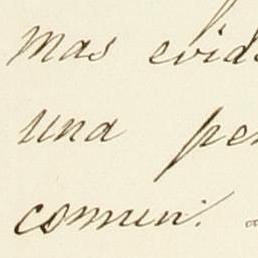 mas evid
una pe
comun.